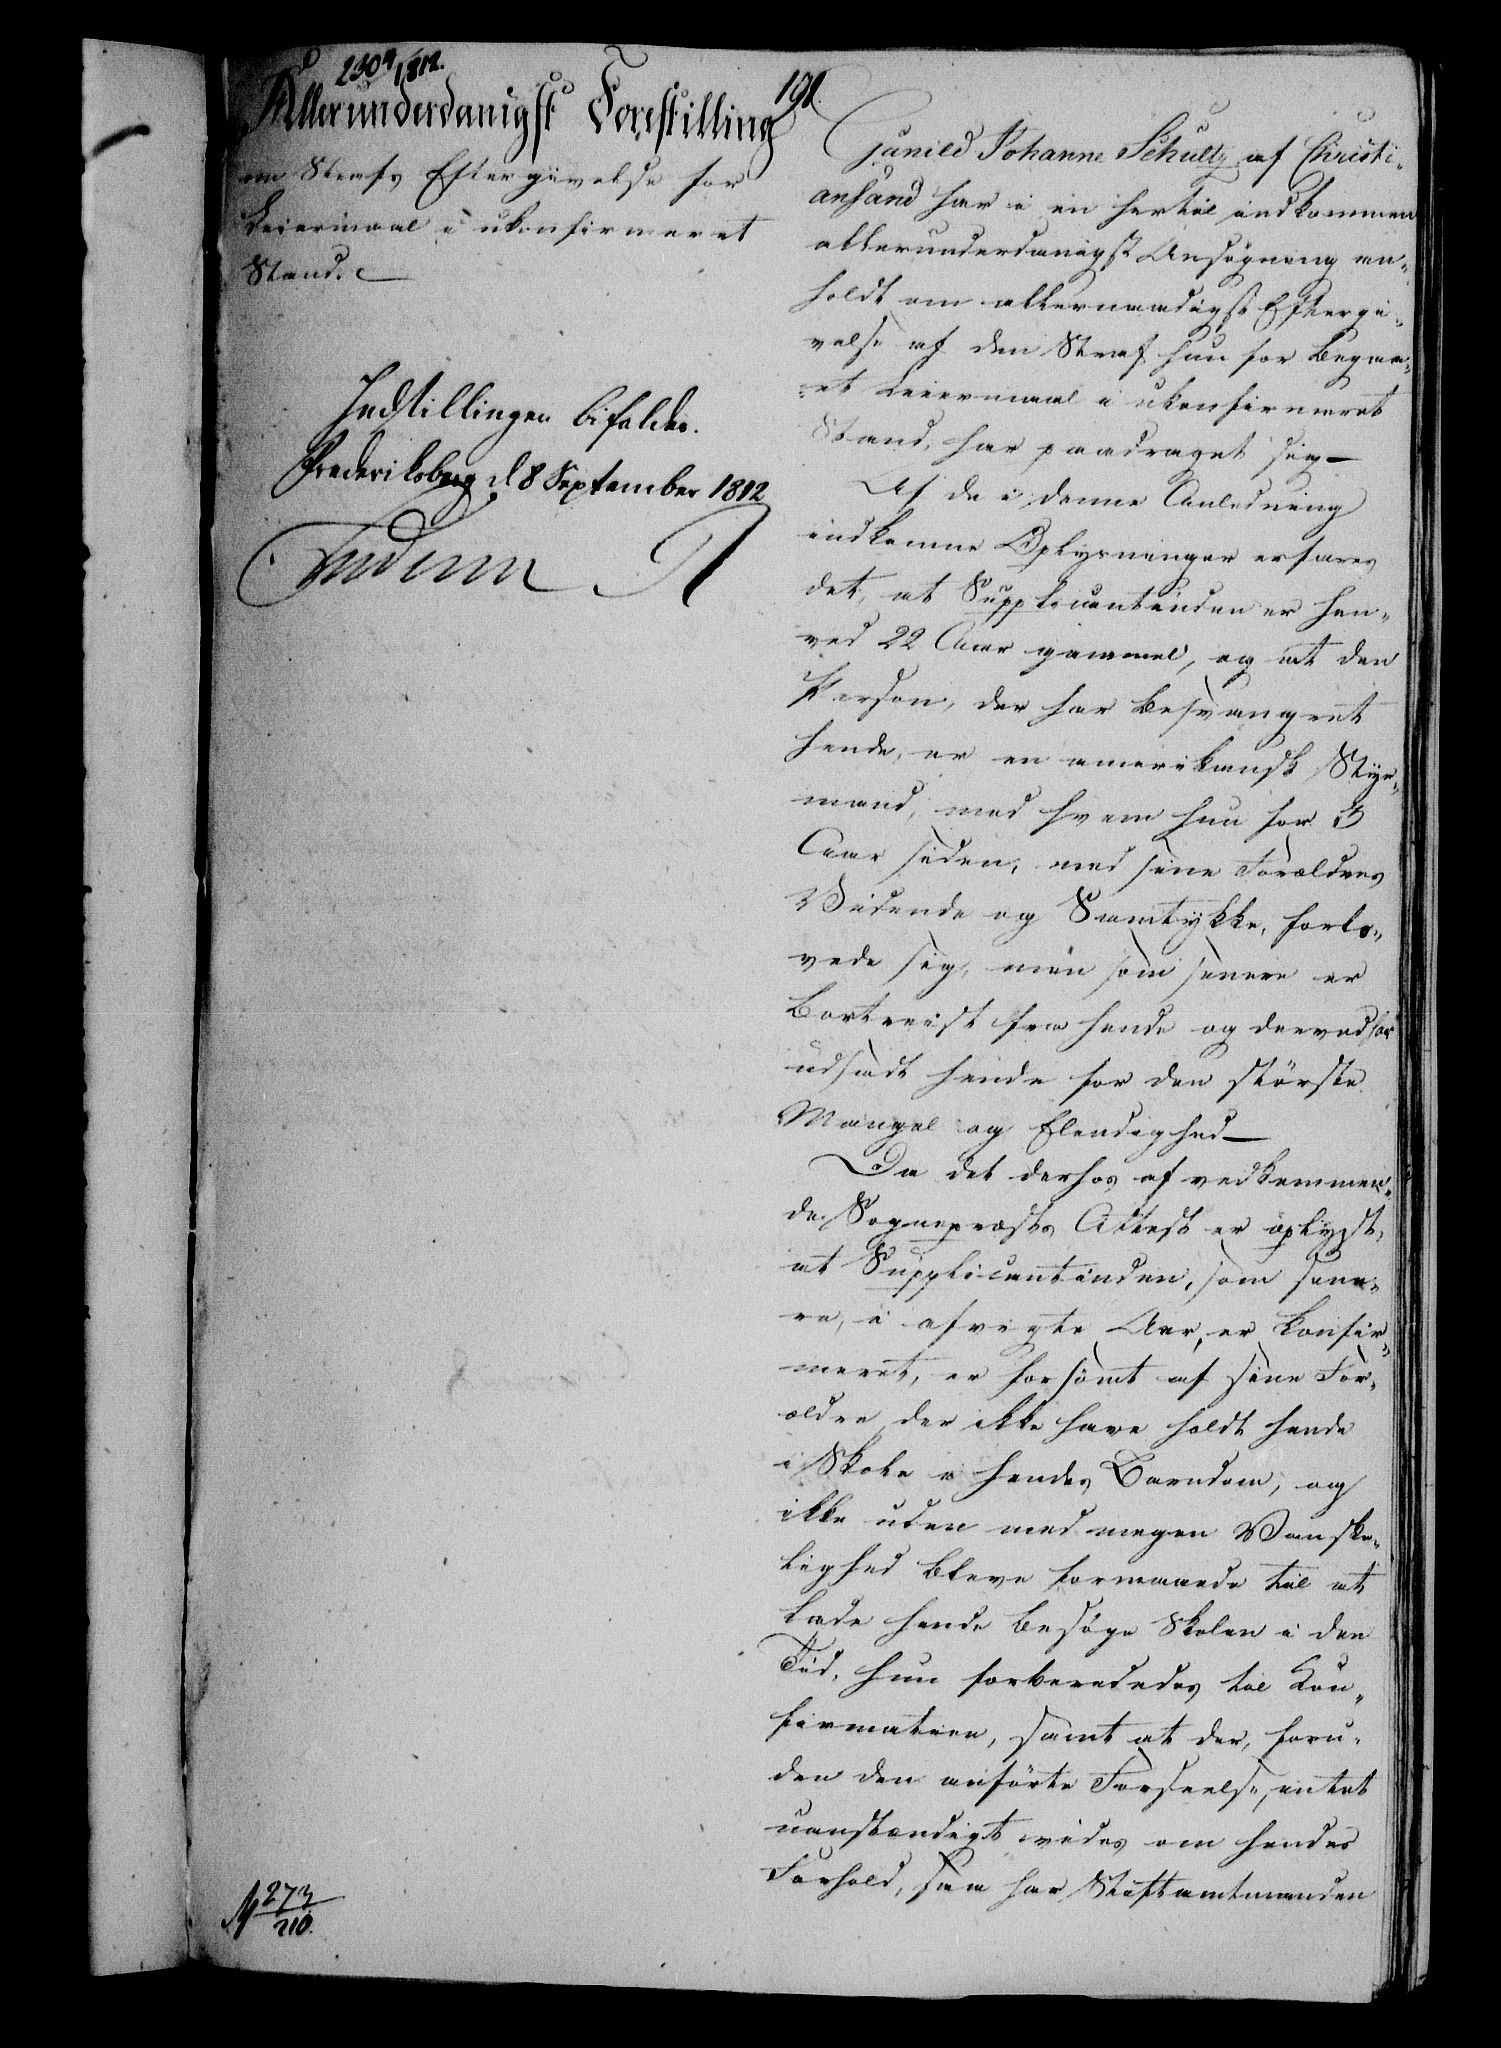 2309/1812.
191.
Allerunderdanigst Forestilling
om Strafs Eftergivelse for
Leiermaal i ukonfirmeret
Stand.
Indstillingen bifaldes.
Frederiksberg d 8 September 1812
Frederik R
Gunild Johanne Schultz af Christi-
ansand har i en hertil indkommen
allerunderdanigst Ansøgning an-
holdt om allernaadigst Eftergi-
velse af den Straf hun for begaa-
et Leiermaal i ukonfirmeret
Stand, har paadraget sig —
Af de i denne Anledning
indkomne Oplysninger erfares
det, at Supplicantinden er hen-
ved 22 Aar gammel, og at den
Person, der har besvangret
hende, er en amerikansk Styr-
mand, med hvem hun for 3
Aar siden, med sine Forældres
Vidende og Samtykke, forlo-
vede sig, men som senere er
bortreist fra hende og derved har
udsadt hende for den störste
Mangel og Elendighed —
Da det derhos af vedkommen-
de Sognepræsts Attest er oplyst,
at Supplicantinden, som sene-
re, i afvigte Aar, er konfir-
meret, er forsömt af sine For-
ældre, der ikke have holdt hende
i Skole i hendes Barndom, og
ikke uden med megen Vanske-
lighed bleve formaaede til at
lade hende besøge Skolen i den
Tid, hun forberededes til Con-
firmation, samt at der, foru-
den den anförte Forseelse, intet
uanstændigt vides om hendes
Forhold, saa har Stiftamtmanden
N 273/210.